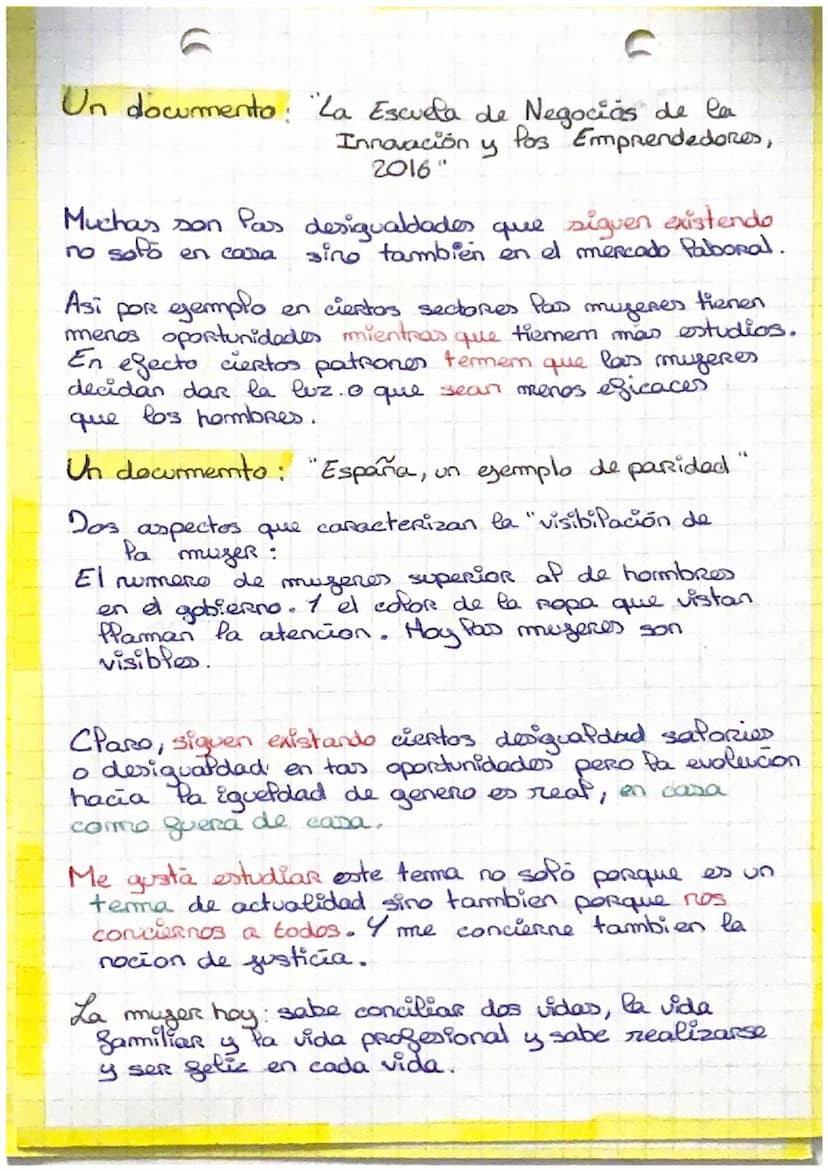 Un documento: "La Escuela de Negocios de la
Innovación y los Emprendedores,
2016"
Muchas son las desigualdades que siguen existendo
no soló en casa sino también en el mercado laboral.
Asi por ejemplo en ciertos sectores las mujeres tienen
menos oportunidades mientras que tienem más estudios.
En efecto ciertos patrones temem que las mujeres
decidan dar la luz. o que sean menos eficaces
que los hombres.
Un documemto: "España, un ejemplo de paridad"
Dos aspectos que caracterizan la "visibilación de
la mujer:
El numero de mujeres superior al de hombres
en el gobierno. Y el color de la ropa que vistan
llaman la atencion. Hoy las mujeres son
visibles.
Claro, siguen existando ciertos desigualdad salaries
o desigualdad en tas oportunidades pero la evolucion
hacia la igueldad de genero es real, en casa
como fuera de casa.
Me gusta estudiar este tema no soló porque es un
tema de actualidad sino tambien porque nos
conciernos a todos. Y me concierne tambien la
nocion de justicia.
La mujer hoy: sabe conciliar dos vidas, la vida
familiar y la vida profesional y sabe realizarse
y ser feliz en cada vida.